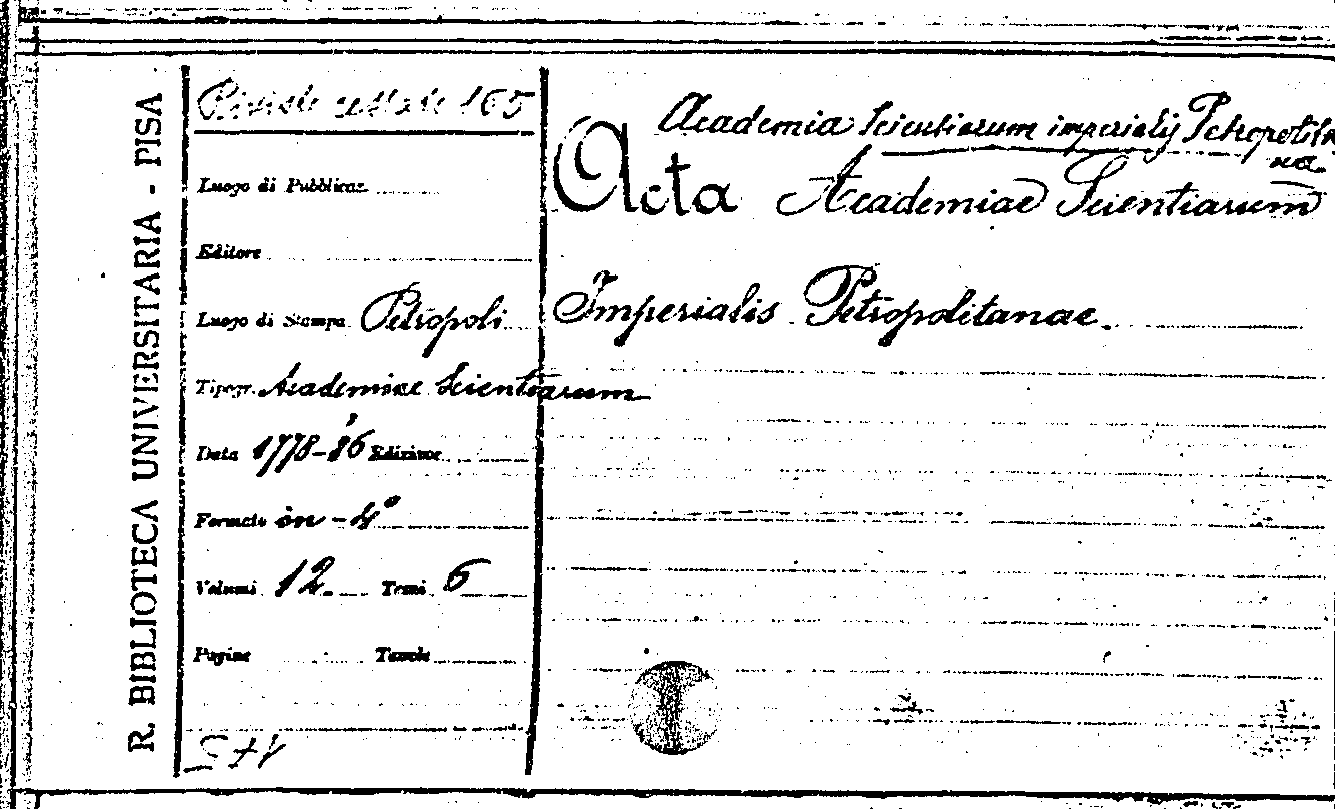 R. BIBLIOTECA UNIVERSITARIA - PISA
Riviste cessate 165
Luogo di Pubblicaz.
Editore
Luogo di Stampa Petropoli
Tipogr. Academiae Scientiarum
Data 1778-86 Edizione
Formato in-4°
Volumi 12. Tomi 6
Pagine Tavole
Academia Scientiarum imperialis Petropolita
na
Acta Academiae Scientiarum
Imperialis Petropolitanae.